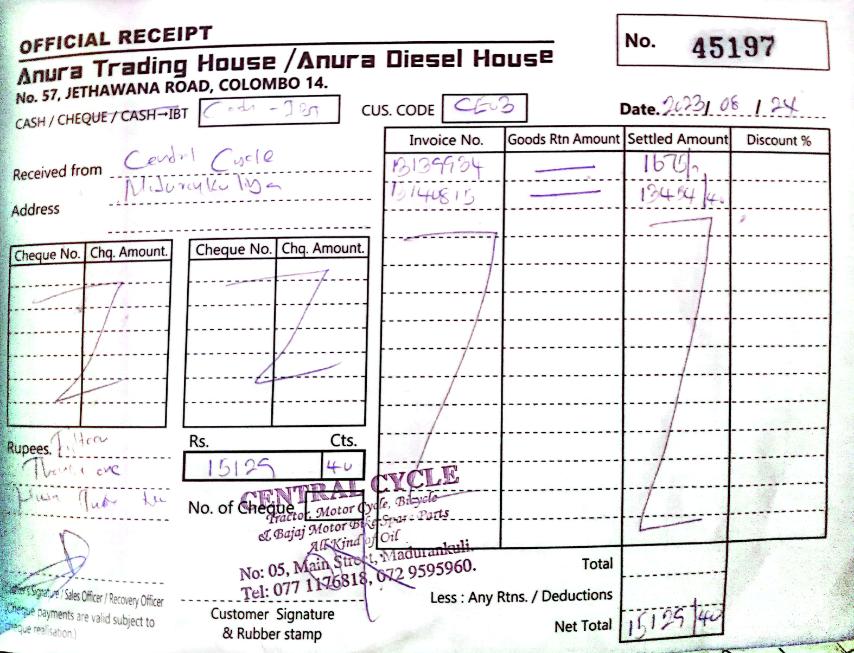 OFFICIAL RECEIPT
Anura Trading House /Anura Diesel House
No. 57, JETHAWANA ROAD, COLOMBO 14.
No. 45197
CASH / CHEQUE / CASH→IBT Cash - IBT
CUS. CODE
Date. 2023/ 08 / 24
Received from Central Cycle
Address
Invoice No. Goods Rtn Amount Settled Amount Discount %
13139934 1675/-
13140815 13454/40
Cheque No. Chq. Amount. Cheque No. Chq. Amount.
Rupees. Fifteen
Thousand one
Rs. Cts.
15129 40
No. of Cheque
CENTRAL CYCLE
Tractor, Motor Cycle, Bicycle
& Bajaj Motor Bike Spare Parts
All Kind of Oil
No: 05, Main Street, Madurankuli.
Tel: 077 1176818, 072 9595960.
Signature / Sales Officer / Recovery Officer
(Cheque payments are valid subject to
cheque realisation.)
Customer Signature
& Rubber stamp
Total
Less : Any Rtns. / Deductions
Net Total 15129/40